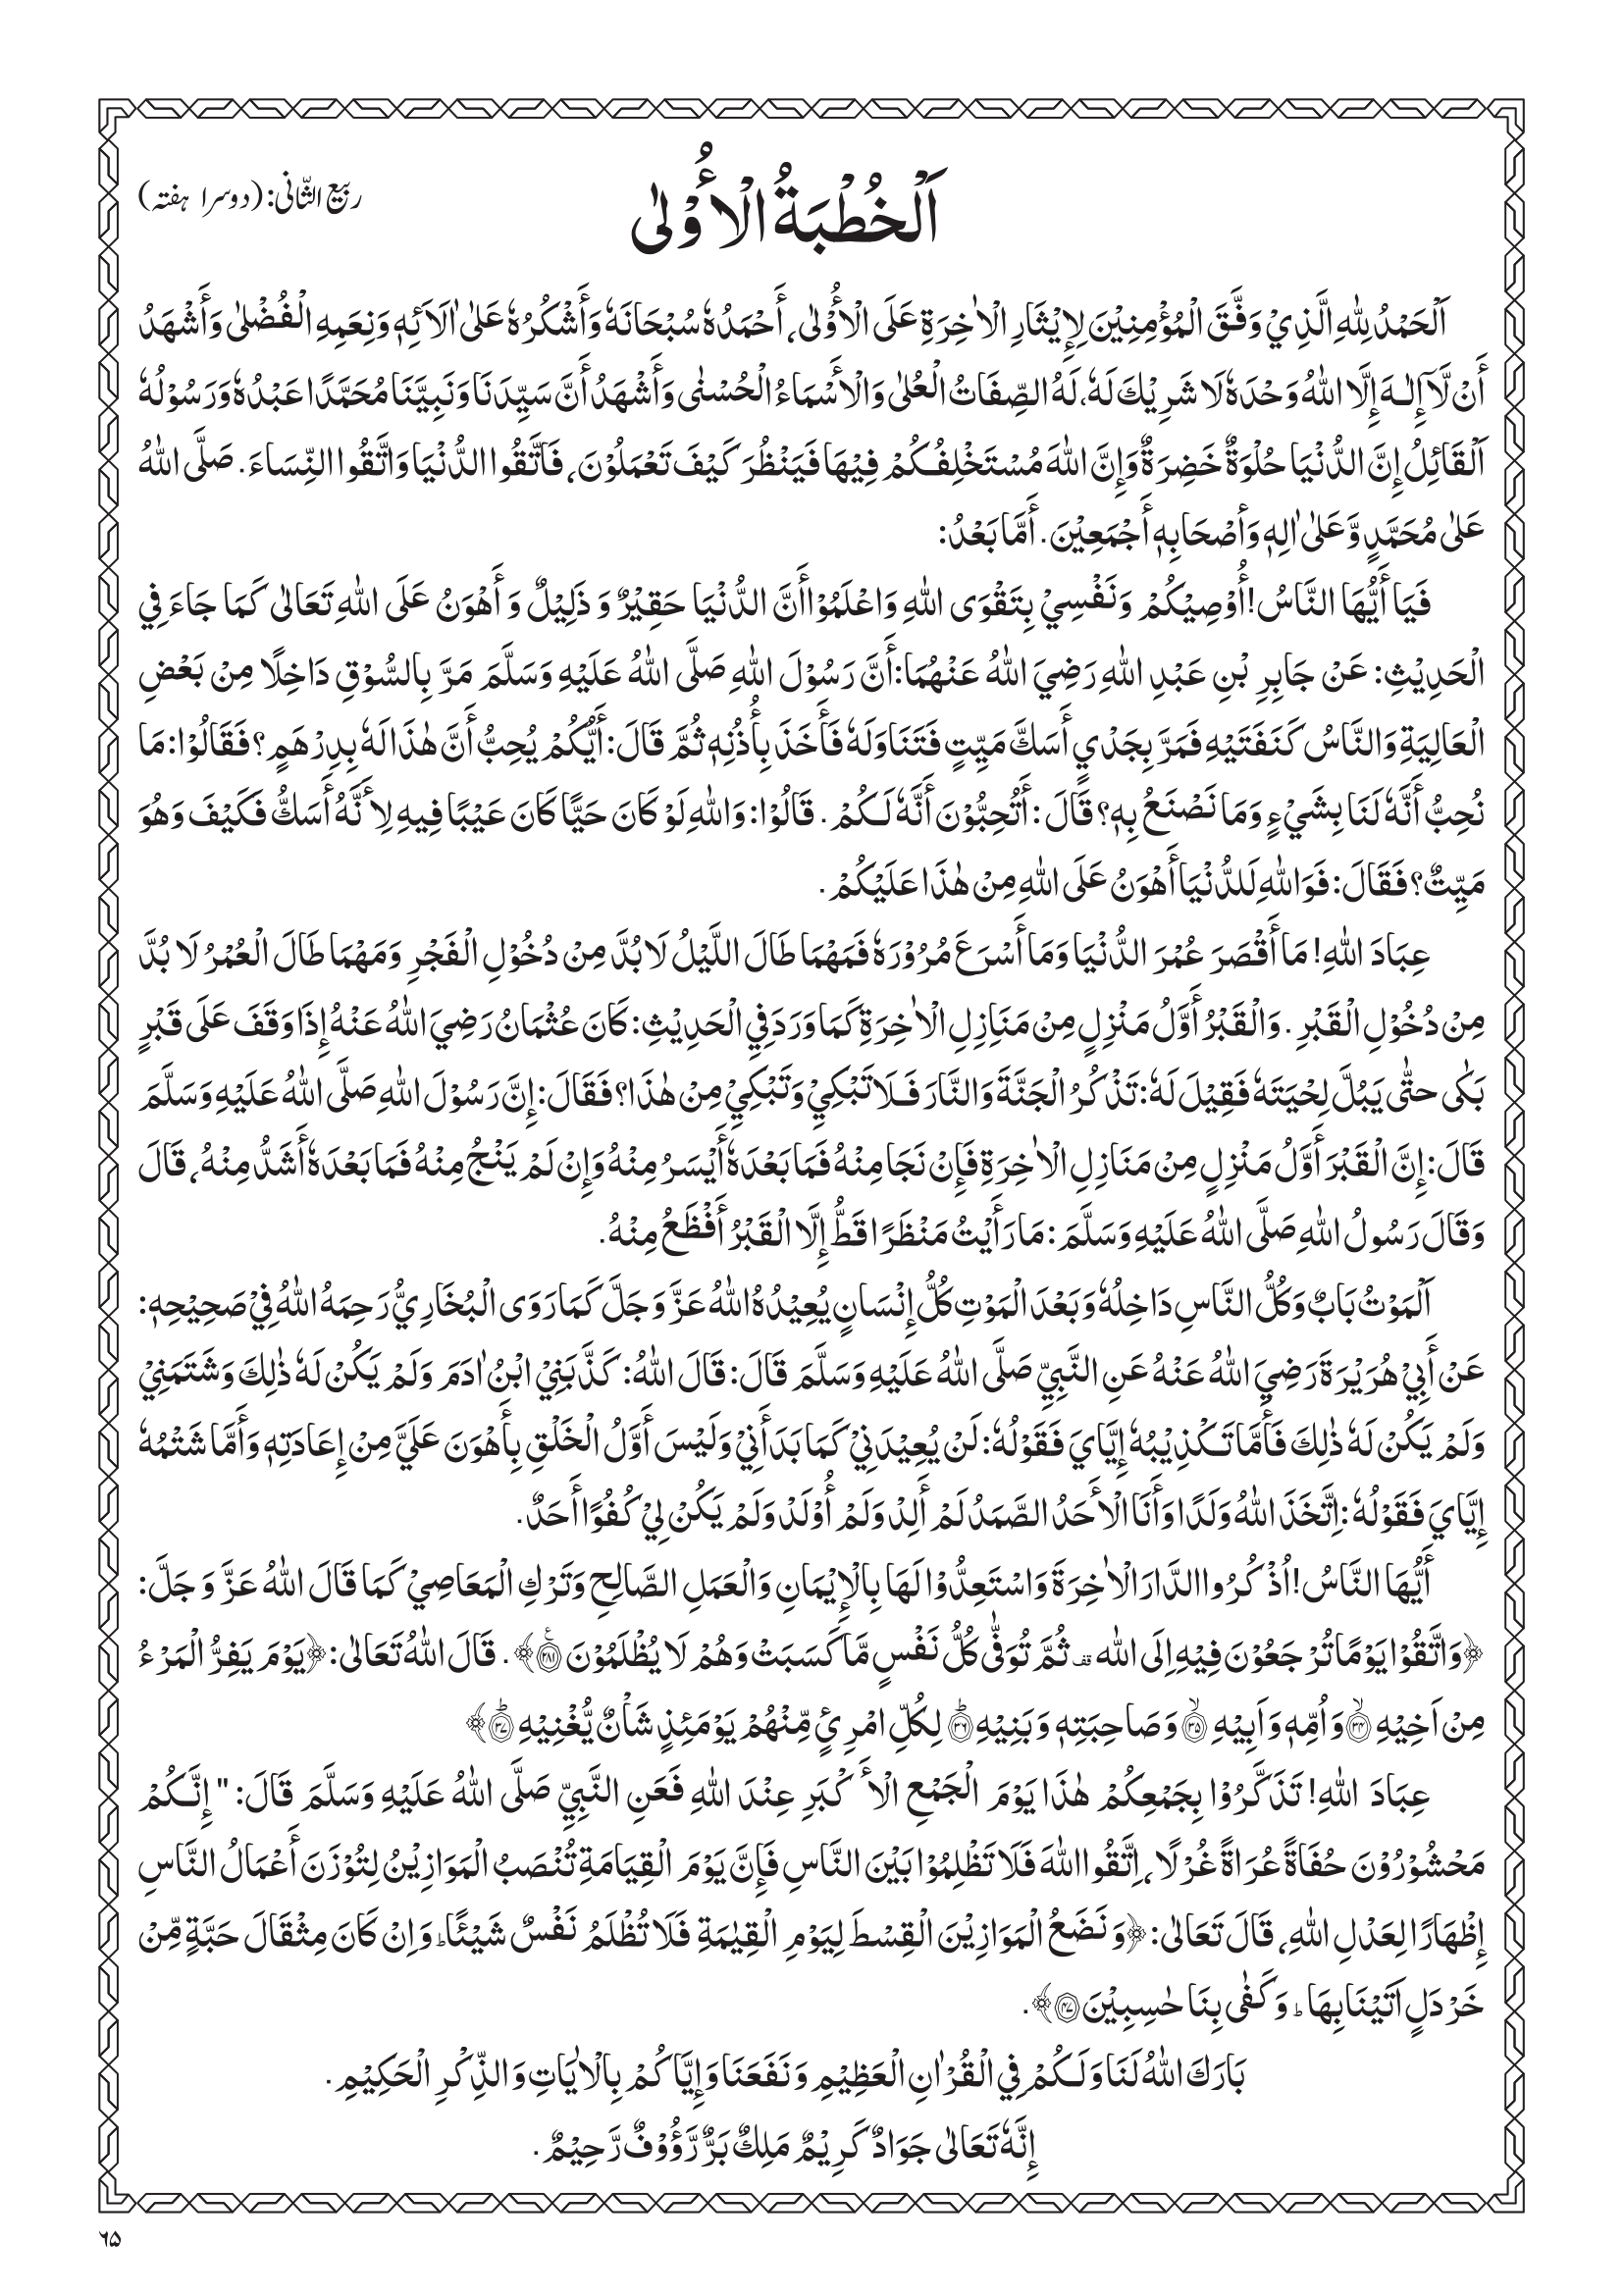 ربیع الثّانی: (دوسرا ہفتہ)
اَلْخُطْبَةُ الْأُوْلٰى
اَلْحَمْدُ لِلّٰهِ الَّذِيْ وَفَّقَ الْمُؤْمِنِيْنَ لِإِيْثَارِ الْاٰخِرَةِ عَلَى الْأُوْلٰى، أَحْمَدُهٗ سُبْحَانَهٗ وَأَشْكُرُهٗ عَلٰى اٰلَائِهٖ وَنِعَمِهِ الْفُضْلٰى وَأَشْهَدُ
أَنْ لَّآ إِلٰـهَ إِلَّا اللّٰهُ وَحْدَهٗ لَا شَرِيْكَ لَهٗ، لَهُ الصِّفَاتُ الْعُلٰى وَالْأَسْمَاءُ الْحُسْنٰى وَأَشْهَدُ أَنَّ سَيِّدَنَا وَنَبِيَّنَا مُحَمَّدًا عَبْدُهٗ وَرَسُوْلُهٗ
اَلْقَائِلُ إِنَّ الدُّنْيَا حُلْوَةٌ خَضِرَةٌ وَإِنَّ اللّٰهَ مُسْتَخْلِفُكُمْ فِيْهَا فَيَنْظُرَ كَيْفَ تَعْمَلُوْنَ، فَاتَّقُوا الدُّنْيَا وَاتَّقُوا النِّسَاءَ. صَلَّى اللّٰهُ
عَلٰى مُحَمَّدٍ وَّعَلٰى اٰلِهٖ وَأَصْحَابِهٖ أَجْمَعِيْنَ. أَمَّا بَعْدُ:
فَيَا أَيُّهَا النَّاسُ! أُوْصِيْكُمْ وَنَفْسِيْ بِتَقْوَى اللّٰهِ وَاعْلَمُوْا أَنَّ الدُّنْيَا حَقِيْرٌ وَ ذَلِيْلٌ وَ أَهْوَنُ عَلَى اللّٰهِ تَعَالٰى كَمَا جَاءَ فِي
الْحَدِيْثِ: عَنْ جَابِرِ بْنِ عَبْدِ اللّٰهِ رَضِيَ اللّٰهُ عَنْهُمَا: أَنَّ رَسُوْلَ اللّٰهِ صَلَّى اللّٰهُ عَلَيْهِ وَسَلَّمَ مَرَّ بِالسُّوْقِ دَاخِلًا مِنْ بَعْضِ
الْعَالِيَةِ وَالنَّاسُ كَنَفَتَيْهِ فَمَرَّ بِجَدْيٍ أَسَكَّ مَيِّتٍ فَتَنَاوَلَهٗ فَأَخَذَ بِأُذُنِهٖ ثُمَّ قَالَ: أَيُّكُمْ يُحِبُّ أَنَّ هٰذَا لَهٗ بِدِرْهَمٍ؟ فَقَالُوْا: مَا
نُحِبُّ أَنَّهٗ لَنَا بِشَيْءٍ وَمَا نَصْنَعُ بِهٖ؟ قَالَ: أَتُحِبُّوْنَ أَنَّهٗ لَـكُمْ. قَالُوْا: وَاللّٰهِ لَوْ كَانَ حَيًّا كَانَ عَيْبًا فِيهِ لِأَنَّهُ أَسَكُّ فَكَيْفَ وَهُوَ
مَيِّتٌ؟ فَقَالَ: فَوَاللّٰهِ لَلدُّنْيَا أَهْوَنُ عَلَى اللّٰهِ مِنْ هٰذَا عَلَيْكُمْ.
عِبَادَ اللّٰهِ! مَا أَقْصَرَ عُمْرَ الدُّنْيَا وَمَا أَسْرَعَ مُرُوْرَهٗ فَمَهْمَا طَالَ اللَّيْلُ لَا بُدَّ مِنْ دُخُوْلِ الْفَجْرِ وَمَهْمَا طَالَ الْعُمْرُ لَا بُدَّ
مِنْ دُخُوْلِ الْقَبْرِ. وَالْقَبْرُ أَوَّلُ مَنْزِلٍ مِنْ مَنَازِلِ الْاٰخِرَةِ كَمَا وَرَدَ فِي الْحَدِيْثِ: كَانَ عُثْمَانُ رَضِيَ اللّٰهُ عَنْهُ إِذَا وَقَفَ عَلَى قَبْرٍ
بَكٰى حتّٰى يَبُلَّ لِحْيَتَهٗ فَقِيْلَ لَهٗ: تَذْكُرُ الْجَنَّةَ وَالنَّارَ فَـلَا تَبْكِيْ وَتَبْكِيْ مِنْ هٰذَا؟ فَقَالَ: إِنَّ رَسُوْلَ اللّٰهِ صَلَّى اللّٰهُ عَلَيْهِ وَسَلَّمَ
قَالَ: إِنَّ الْقَبْرَ أَوَّلُ مَنْزِلٍ مِنْ مَنَازِلِ الْاٰخِرَةِ فَإِنْ نَجَا مِنْهُ فَمَا بَعْدَهٗ أَيْسَرُ مِنْهُ وَإِنْ لَمْ يَنْجُ مِنْهُ فَمَا بَعْدَهٗ أَشَدُّ مِنْهُ، قَالَ
وَقَالَ رَسُولُ اللّٰهِ صَلَّى اللّٰهُ عَلَيْهِ وَسَلَّمَ: مَا رَأَيْتُ مَنْظَرًا قَطُّ إِلَّا الْقَبْرُ أَفْظَعُ مِنْهُ.
اَلْمَوْتُ بَابٌ وَكُلُّ النَّاسِ دَاخِلُهٗ وَبَعْدَ الْمَوْتِ كُلُّ إِنْسَانٍ يُعِيْدُهُ اللّٰهُ عَزَّ وَجَلَّ كَمَا رَوَى الْبُخَارِيُّ رَحِمَهُ اللّٰهُ فِيْ صَحِيْحِهٖ:
عَنْ أَبِيْ هُرَيْرَةَ رَضِيَ اللّٰهُ عَنْهُ عَنِ النَّبِيِّ صَلَّى اللّٰهُ عَلَيْهِ وَسَلَّمَ قَالَ: قَالَ اللّٰهُ: كَذَّبَنِيْ ابْنُ اٰدَمَ وَلَمْ يَكُنْ لَهٗ ذٰلِكَ وَشَتَمَنِيْ
وَلَمْ يَكُنْ لَهٗ ذٰلِكَ فَأَمَّا تَـكْذِيْبُهٗ إِيَّايَ فَقَوْلُهٗ: لَنْ يُعِيْدَنِيْ كَمَا بَدَأَنِيْ وَلَيْسَ أَوَّلُ الْخَلْقِ بِأَهْوَنَ عَلَيَّ مِنْ إِعَادَتِهٖ وَأَمَّا شَتْمُهٗ
إِيَّايَ فَقَوْلُهٗ: اِتَّخَذَ اللّٰهُ وَلَدًا وَأَنَا الْأَحَدُ الصَّمَدُ لَمْ أَلِدْ وَلَمْ أُوْلَدْ وَلَمْ يَكُنْ لِيْ كُفُوًا أَحَدٌ.
أَيُّهَا النَّاسُ! اُذْكُرُوا الدَّارَ الْاٰخِرَةَ وَاسْتَعِدُّوْا لَهَا بِالْإِيْمَانِ وَالْعَمَلِ الصَّالِحِ وَتَرْكِ الْمَعَاصِيْ كَمَا قَالَ اللّٰهُ عَزَّ وَ جَلَّ:
﴿وَاتَّقُوْا يَوْمًا تُرْجَعُوْنَ فِيْهِ اِلَى اللّٰه ۗ ثُمَّ تُوَفّٰى كُلُّ نَفْسٍ مَّا كَسَبَتْ وَهُمْ لَا يُظْلَمُوْنَ ۲۸۱﴾. قَالَ اللّٰهُ تَعَالٰى: ﴿يَوْمَ يَفِرُّ الْمَرْءُ
مِنْ اَخِيْهِ ۳۴ وَاُمِّهٖ وَاَبِيْهِ ۳۵ وَصَاحِبَتِهٖ وَبَنِيْهِ ۳۶ لِكُلِّ امْرِئٍ مِّنْهُمْ يَوْمَئِذٍ شَاْنٌ يُّغْنِيْهِ ۳۷﴾
عِبَادَ اللّٰهِ! تَذَكَّرُوْا بِجَمْعِكُمْ هٰذَا يَوْمَ الْجَمْعِ الْأَكْبَرِ عِنْدَ اللّٰهِ فَعَنِ النَّبِيِّ صَلَّى اللّٰهُ عَلَيْهِ وَسَلَّمَ قَالَ: "إِنَّـكُمْ
مَحْشُوْرُوْنَ حُفَاةً عُرَاةً غُرْلًا، اِتَّقُوا اللّٰهَ فَلَا تَظْلِمُوْا بَيْنَ النَّاسِ فَإِنَّ يَوْمَ الْقِيَامَةِ تُنْصَبُ الْمَوَازِيْنُ لِتُوْزَنَ أَعْمَالُ النَّاسِ
إِظْهَارًا لِعَدْلِ اللّٰهِ، قَالَ تَعَالٰى: ﴿وَنَضَعُ الْمَوَازِيْنَ الْقِسْطَ لِيَوْمِ الْقِيٰمَةِ فَلَا تُظْلَمُ نَفْسٌ شَيْئًا ؕ وَاِنْ كَانَ مِثْقَالَ حَبَّةٍ مِّنْ
خَرْدَلٍ اَتَيْنَا بِهَا ؕ وَكَفٰى بِنَا حٰسِبِيْنَ ۴۷﴾.
بَارَكَ اللّٰهُ لَنَا وَلَـكُمْ فِي الْقُرْاٰنِ الْعَظِيْمِ وَنَفَعَنَا وَإِيَّاكُمْ بِالْاٰيَاتِ وَالذِّكْرِ الْحَكِيْمِ.
إِنَّهٗ تَعَالٰى جَوَادٌ كَرِيْمٌ مَلِكٌ بَرٌّ رَّؤُوْفٌ رَّحِيْمٌ.
۶۵